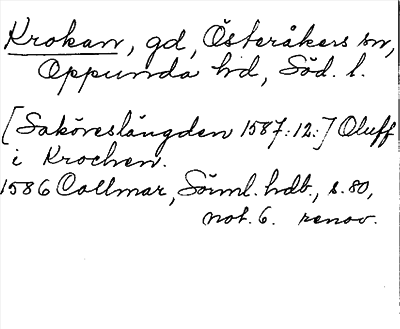 Krokan, gd, Österåkers sn,
Oppunda hd, Söd. l.
[Saköreslängden 1587:12:] Oluff
i Krochen.
1586 Collmar, Sörml. hdb., s. 80,
not. 6. renov.